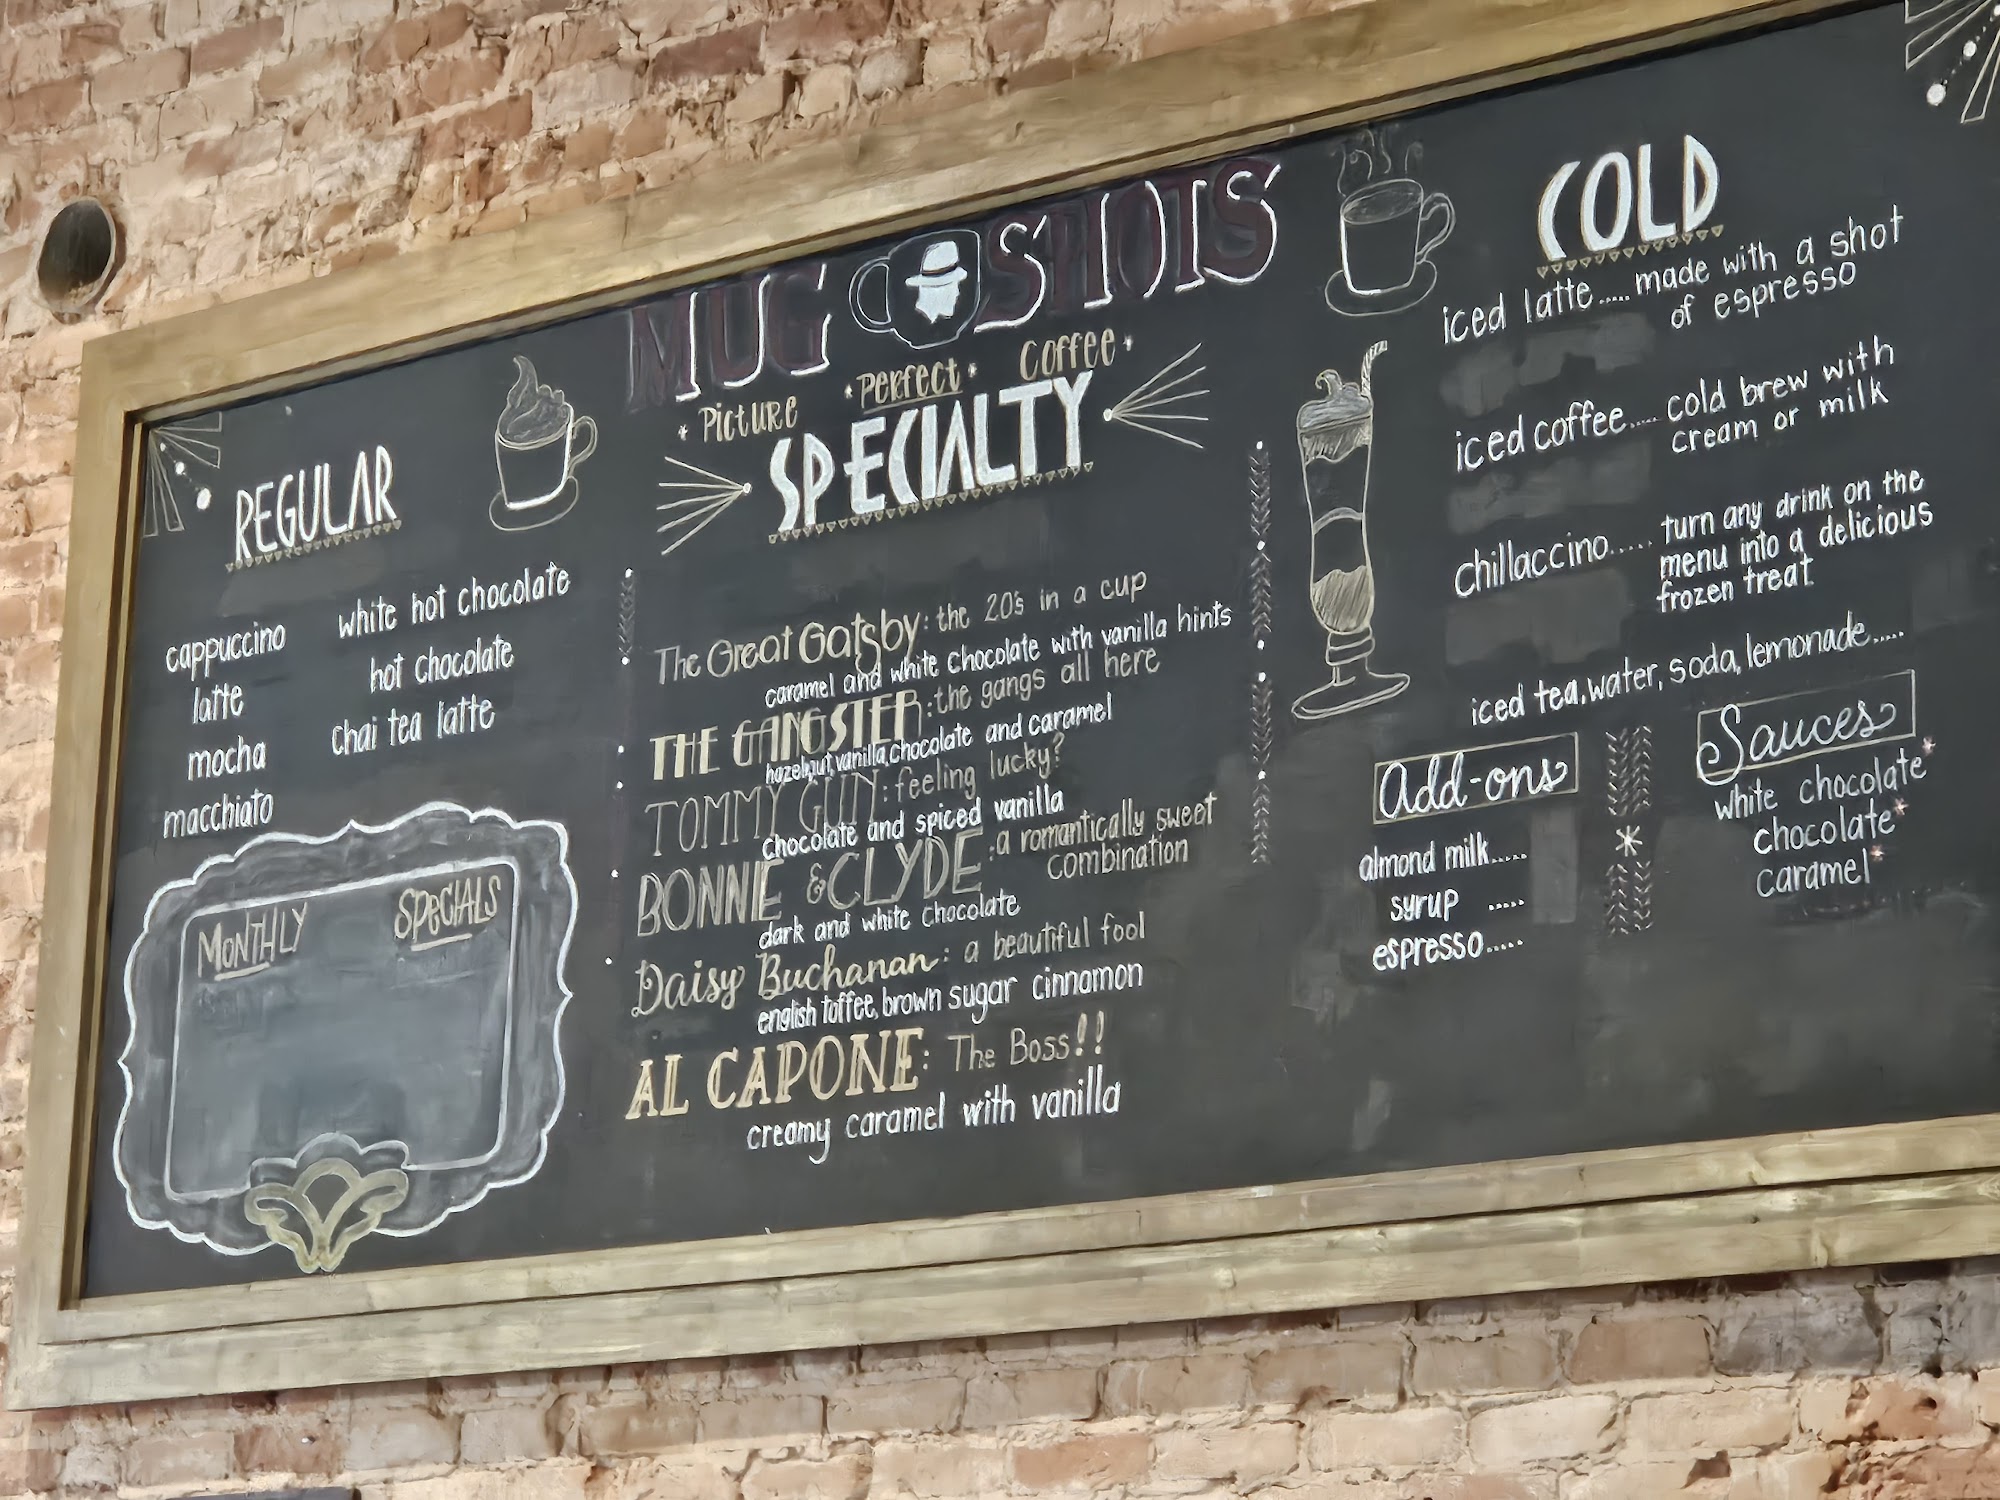 MUG SHOTS
Picture Perfect Coffee
REGULAR
cappuccino
latte
mocha
macchiato
white hot chocolate
hot chocolate
chai tea latte
MONTHLY SPECIALS
SPECIALTY
The Great Gatsby: the 20's in a cup
caramel and white chocolate with vanilla hints
THE GANGSTER: the gangs all here
hazelnut, vanilla, chocolate and caramel
TOMMY GUN: feeling lucky?
chocolate and spiced vanilla
BONNIE & CLYDE: a romantically sweet
combination
dark and white chocolate
Daisy Buchanan: a beautiful fool
english toffee, brown sugar cinnamon
AL CAPONE: The Boss!!
creamy caramel with vanilla
COLD
iced latte..... made with a shot
of espresso
iced coffee..... cold brew with
cream or milk
chillaccino..... turn any drink on the
menu into a delicious
frozen treat.
iced tea, water, soda, lemonade.....
Add-ons
almond milk.....
syrup .....
espresso.....
Sauces
white chocolate*
chocolate*
caramel*